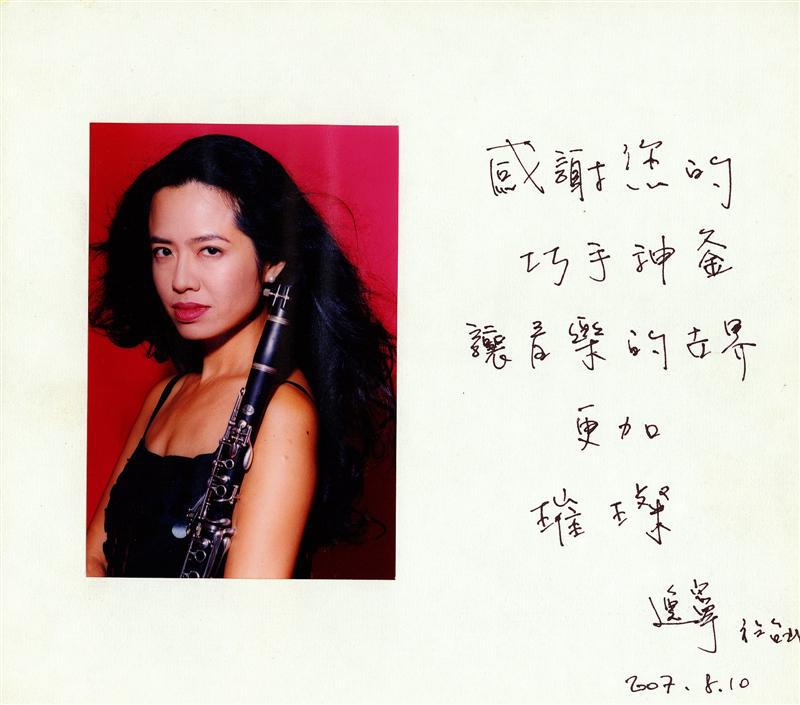 感謝您的
巧手神釜
讓音樂的世界
更加
璀璨
逸寧 於台北
2007.8.10